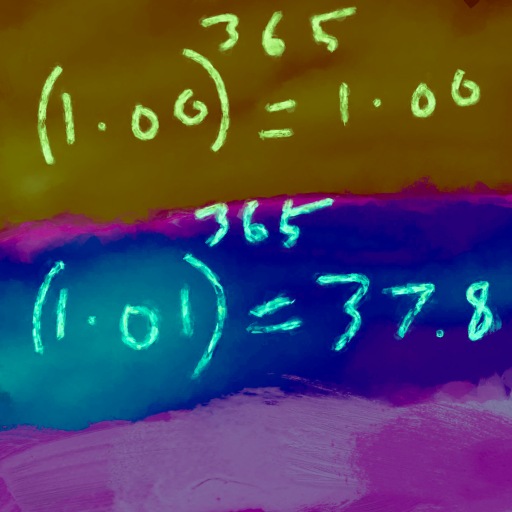 (1.00)³⁶⁵ = 1.00
(1.01)³⁶⁵ = 37.8